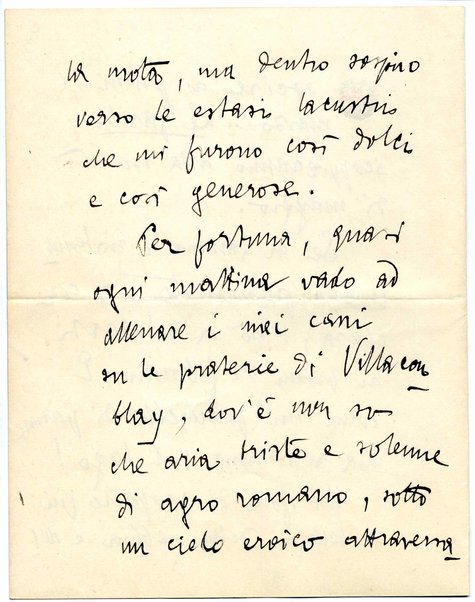 la moda, ma dentro sospiro
verso le estasi lacustri
che mi furono così dolci
e così generose.
Per fortuna, quasi
ogni mattina vado ad
allenare i miei cani
su le praterie di Villacou
blay, dov'è non so
che aria triste e solenne
di agro romano, sotto
un cielo eroico attraversa